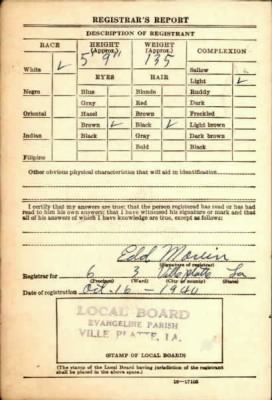 REGISTRAR'S REPORT
DESCRIPTION OF REGISTRANT
RACE HEIGHT (Approx.) WEIGHT (Approx.) COMPLEXION
5' 9" 135
White ✓ Sallow
EYES HAIR Light ✓
Negro Blue Blonde Ruddy
Gray Red Dark
Oriental Hazel Brown Freckled
Brown ✓ Black ✓ Light brown
Indian Black Gray Dark brown
Bald Black
Filipino
Other obvious physical characteristics that will aid in identification
I certify that my answers are true; that the person registered has read or has had
read to him his own answers; that I have witnessed his signature or mark and that
all of his answers of which I have knowledge are true, except as follows:
Edd
(Signature of registrar)
Registrar for 6 3 Ville platte La
(Precinct) (Ward) (City or county) (State)
Date of registration Oct. 16 - 1940
LOCAL BOARD
EVANGELINE PARISH
VILLE PLATTE, LA.
(STAMP OF LOCAL BOARD)
(The stamp of the Local Board having jurisdiction of the registrant
shall be placed in the above space.)